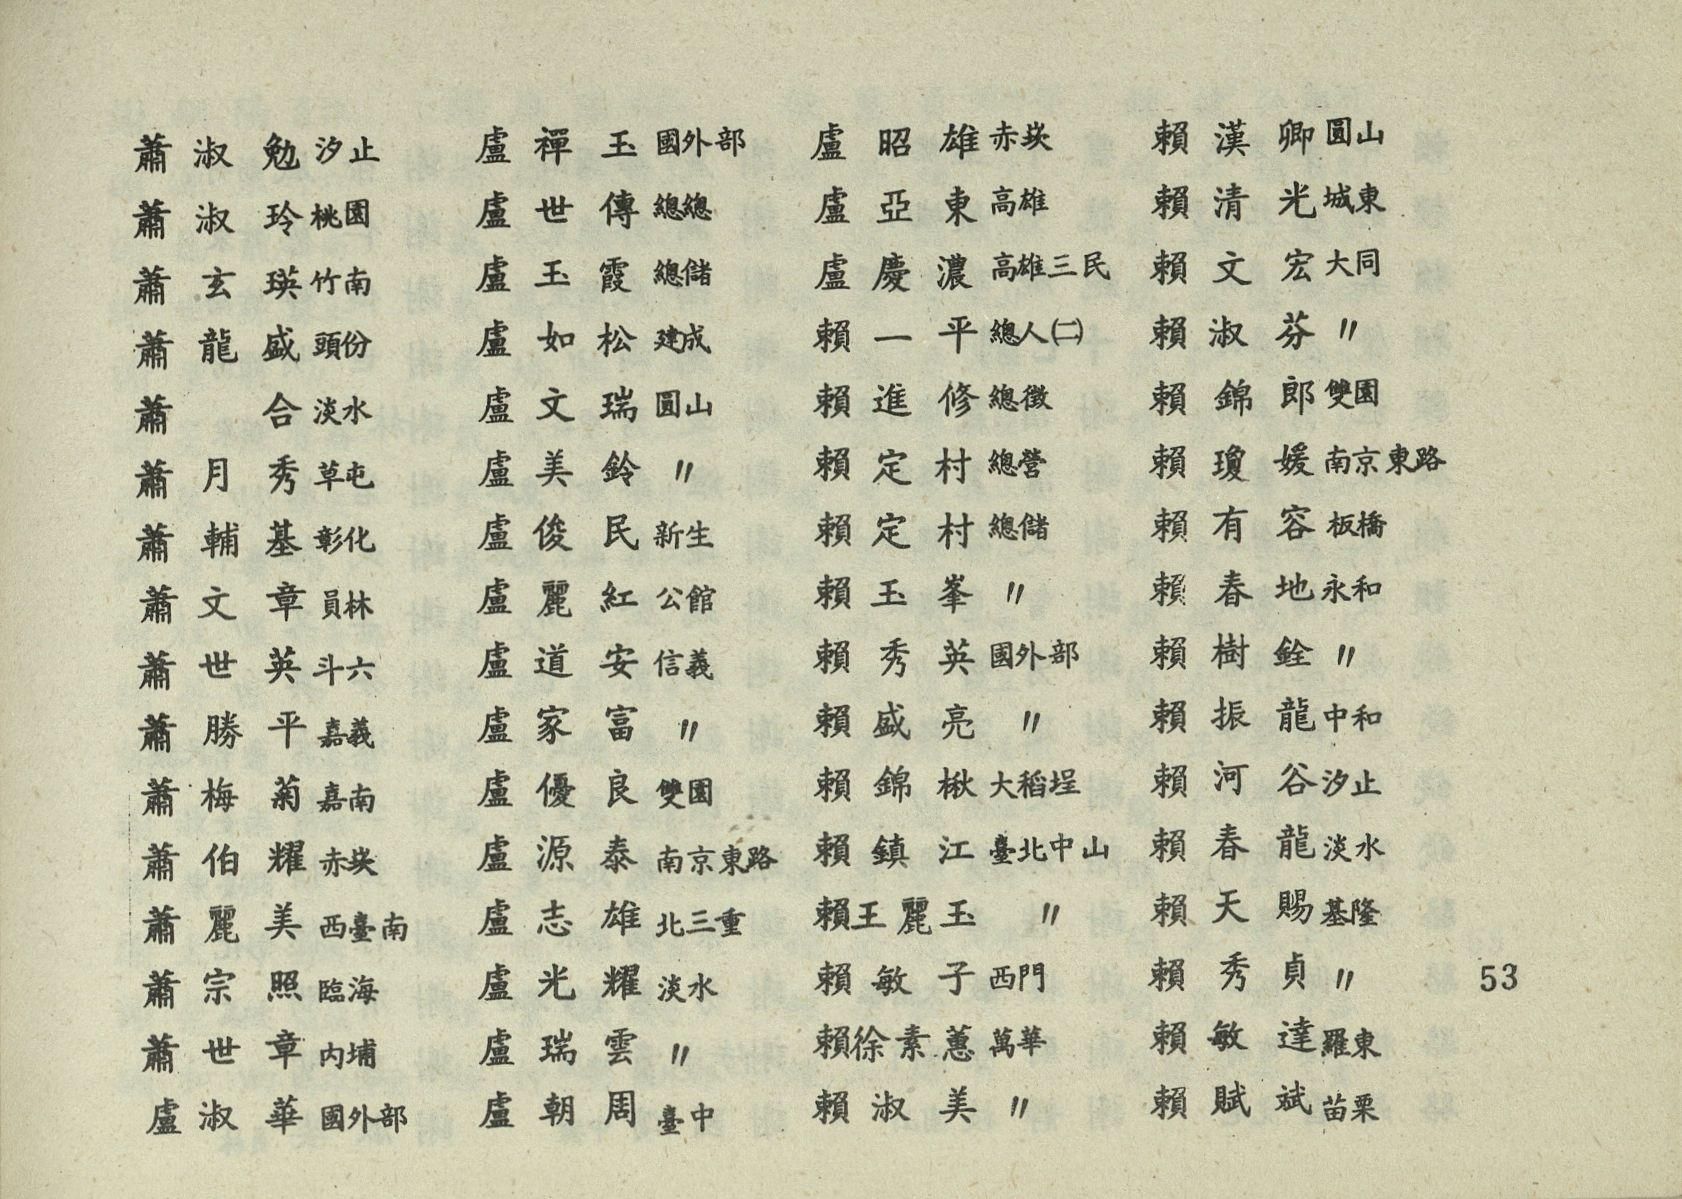 蕭淑勉 汐止
蕭淑玲 桃園
蕭玄瑛 竹南
蕭龍盛 頭份
蕭合 淡水
蕭月秀 草屯
蕭輔基 彰化
蕭文章 員林
蕭世英 斗六
蕭勝平 嘉義
蕭梅菊 嘉南
蕭伯耀 赤崁
蕭麗美 西臺南
蕭宗照 臨海
蕭世章 内埔
盧淑華 國外部
盧禪玉 國外部
盧世傳 總總
盧玉霞 總儲
盧如松 建成
盧文瑞 圓山
盧美鈴 〃
盧俊民 新生
盧麗紅 公館
盧道安 信義
盧家富 〃
盧優良 雙園
盧源泰 南京東路
盧志雄 北三重
盧光耀 淡水
盧瑞雲 〃
盧朝周 臺中
盧昭雄 赤崁
盧亞東 高雄
盧慶濃 高雄三民
賴一平 總人㈡
賴進修 總徵
賴定村 總營
賴定村 總儲
賴玉峯 〃
賴秀英 國外部
賴盛亮 〃
賴錦楸 大稻埕
賴鎮江 臺北中山
賴王麗玉 〃
賴敏子 西門
賴徐素蕙 萬華
賴淑美 〃
賴漢卿 圓山
賴清光 城東
賴文宏 大同
賴淑芬 〃
賴錦郎 雙園
賴瓊媛 南京東路
賴有容 板橋
賴春地 永和
賴樹銓 〃
賴振龍 中和
賴河谷 汐止
賴春龍 淡水
賴天賜 基隆
賴秀貞 〃
賴敏達 羅東
賴賦斌 苗栗
53